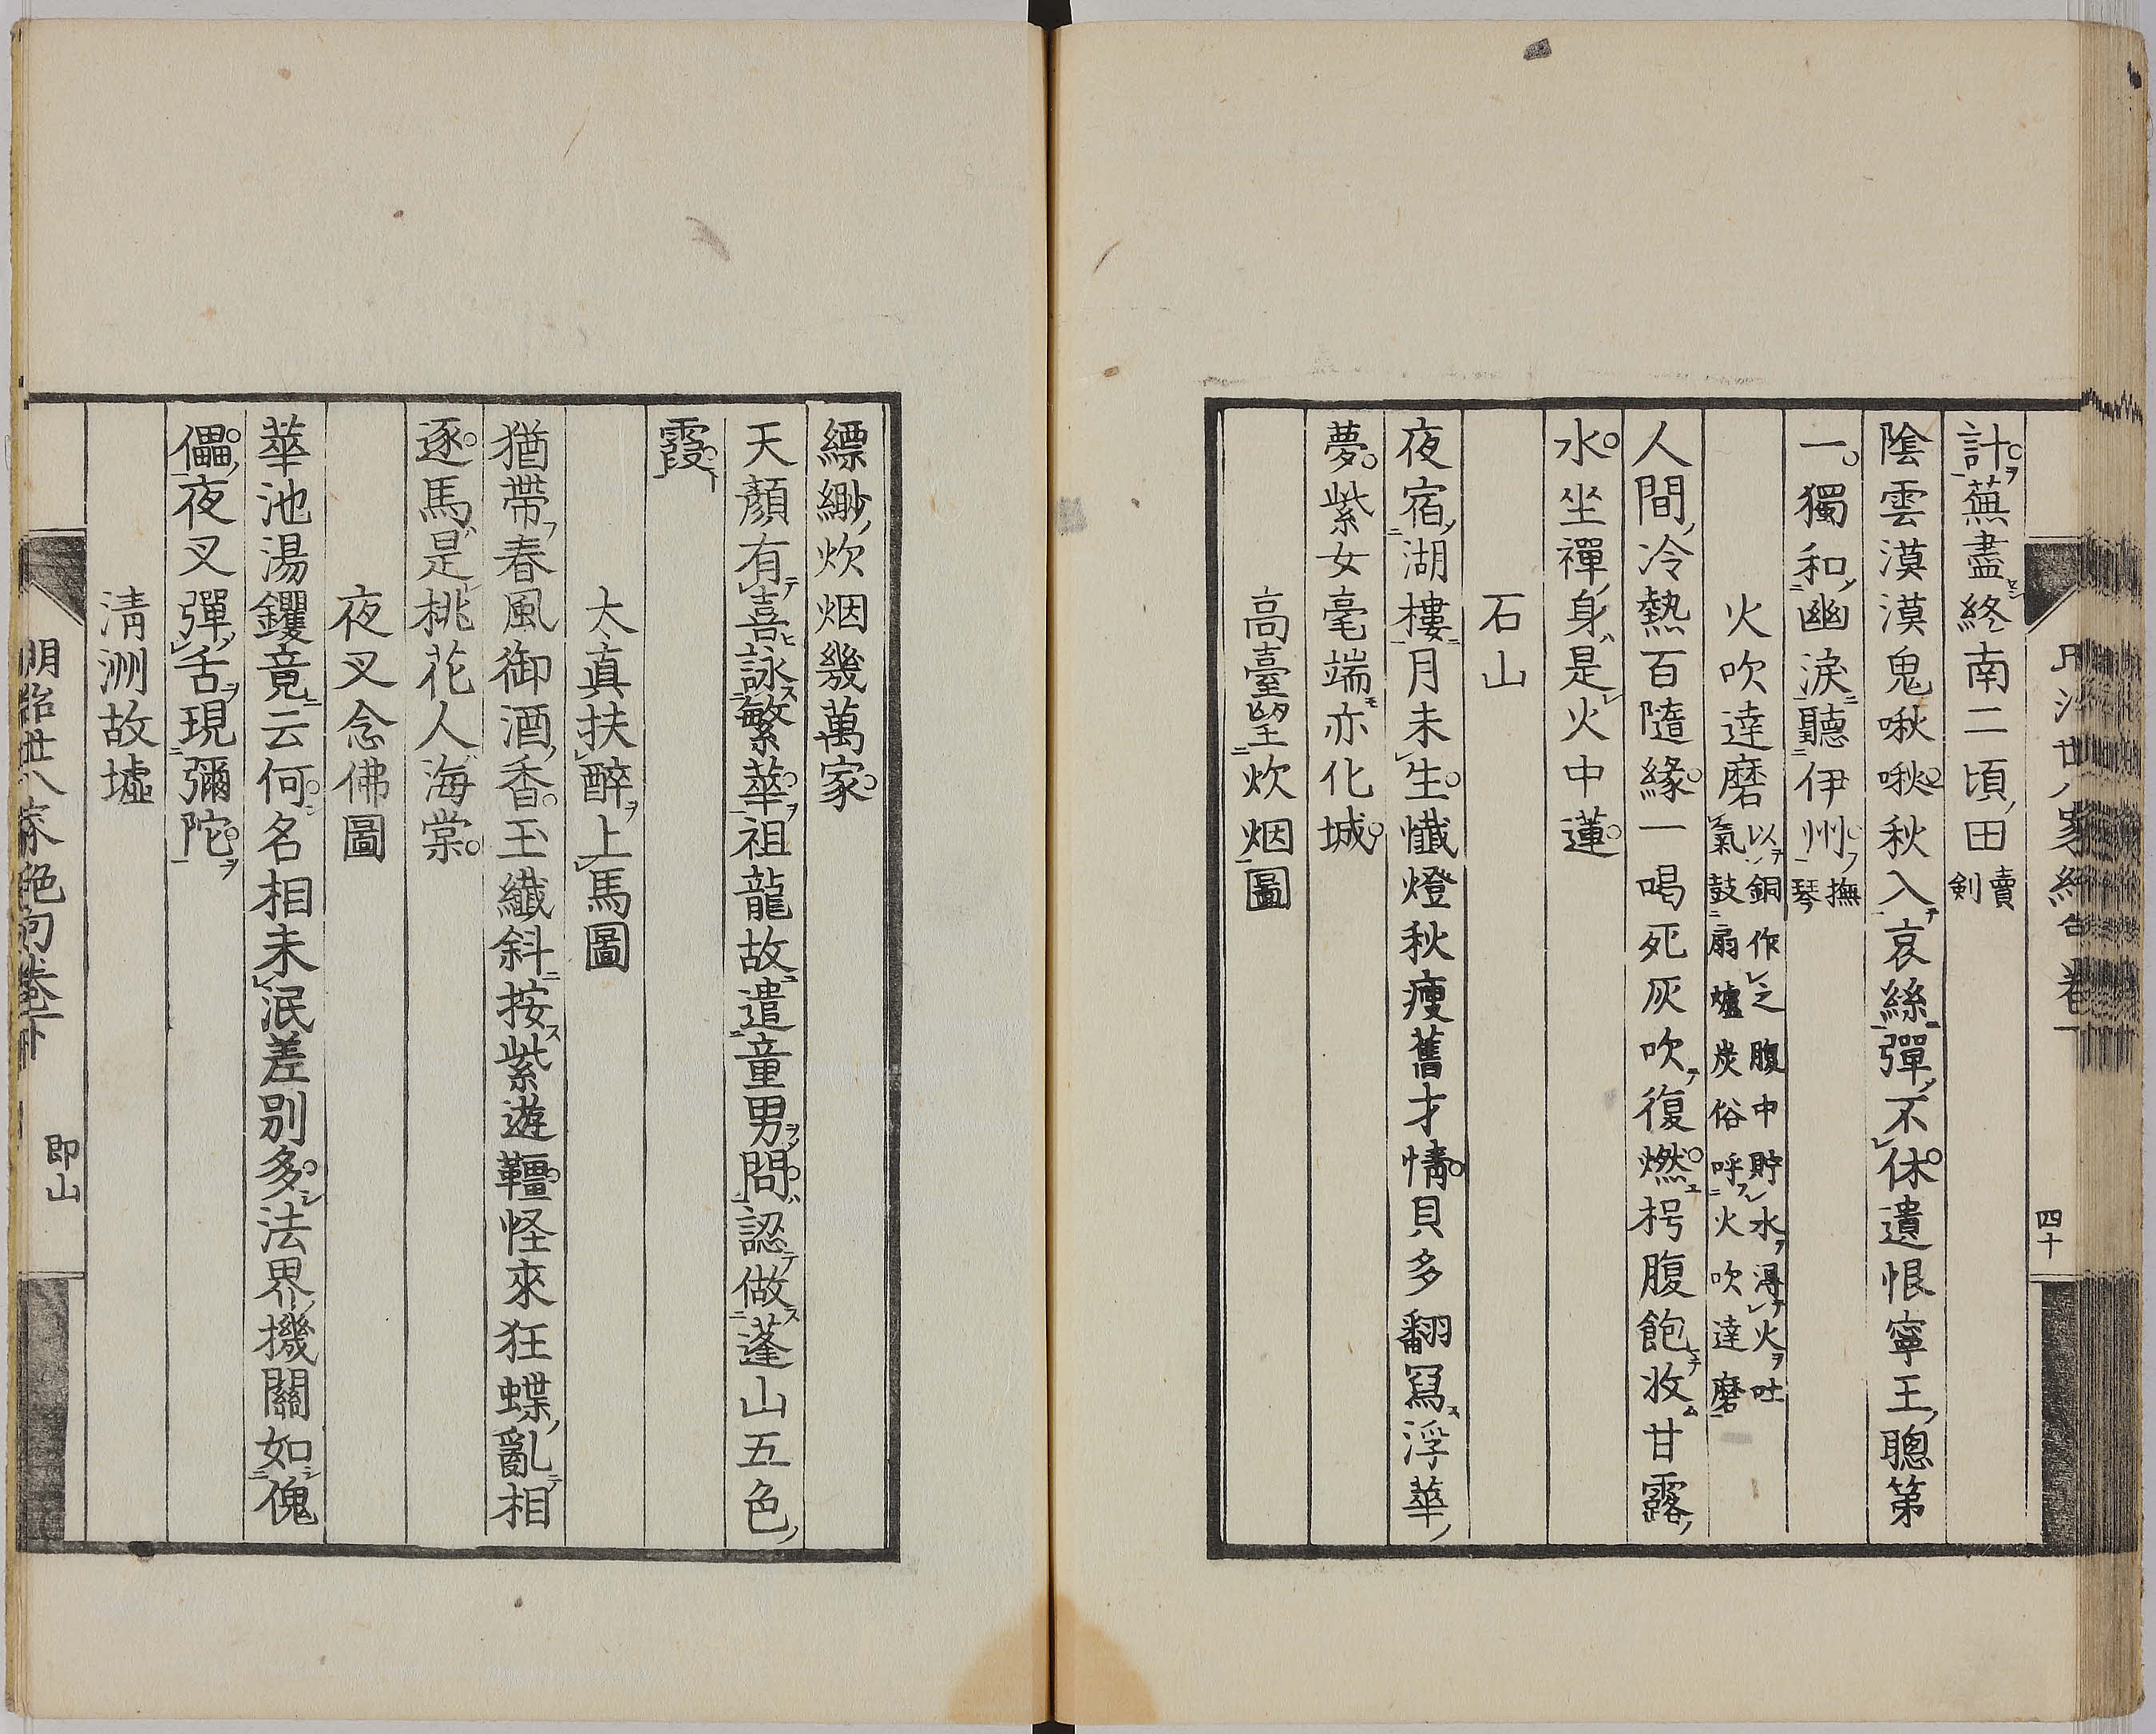 計蕪盡終南二頃田賣劍
陰雲漠漠鬼啾啾秋入哀絲彈不休遺恨寧王聰第
一獨和幽淚聽伊州撫琴
火吹達磨以銅作之腹中貯水得火吐氣鼓扇爐炭俗呼火吹達磨
人間冷熱百隨緣一喝死灰吹復燃枵腹飽收甘露
水坐禪身是火中蓮
石山
夜宿湖樓月未生懺燈秋瘦舊才情貝多翻寫浮華
夢紫女毫端亦化城
高臺望炊烟圖
四十
縹緲炊烟幾萬家
天顏有喜詠繁華祖龍故遣童男問認做蓬山五色
霞
太真扶醉上馬圖
猶帶春風御酒香玉纖斜按紫遊韁怪來狂蝶亂相
逐馬是桃花人海棠
夜叉念佛圖
華池湯钁竟云何名相未泯差別多法界機關如傀
儡夜叉彈舌現彌陀
清洲故墟
明治廿八家絕句卷下
即山